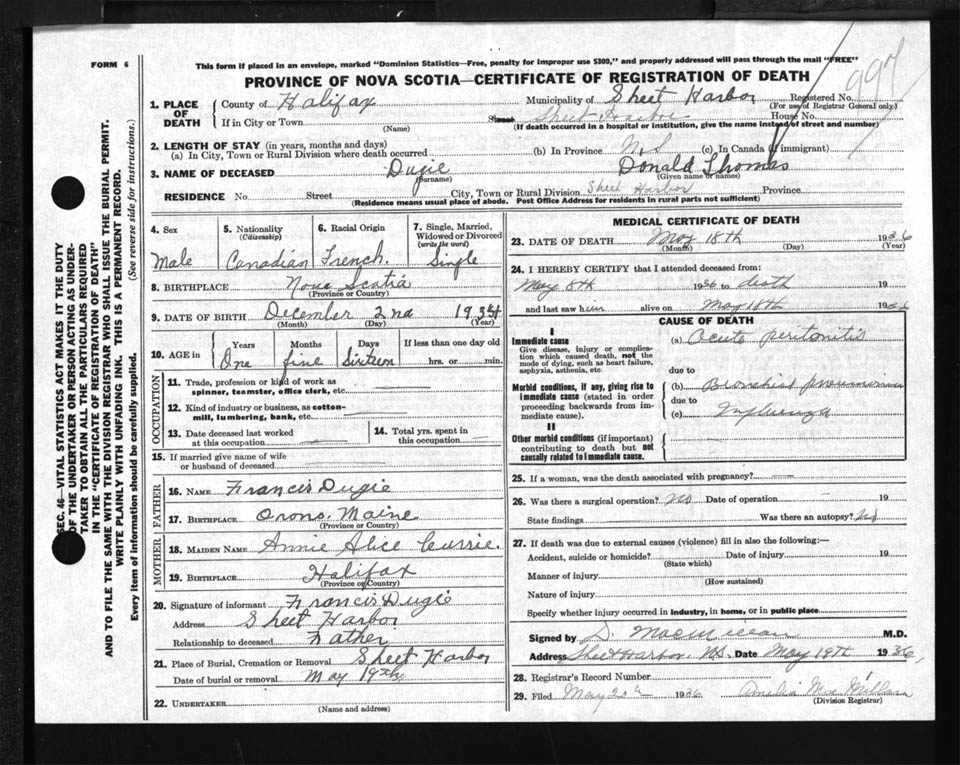 FORM 6
This form if placed in an envelope, marked "Dominion Statistics—Free, penalty for improper use $300," and properly addressed will pass through the mail "FREE"
PROVINCE OF NOVA SCOTIA—CERTIFICATE OF REGISTRATION OF DEATH
997
1. PLACE OF DEATH
County of Halifax Municipality of Sheet Harbor Registered No.
(For use of Registrar General only.)
If in City or Town Street Sheet Harbor House No.
(Name) (If death occurred in a hospital or institution, give the name instead of street and number)
2. LENGTH OF STAY (in years, months and days)
(a) In City, Town or Rural Division where death occurred (b) In Province N.S (c) In Canada (if immigrant)
3. NAME OF DECEASED Dugie Donald Thomas
(Surname) (Given name or names)
RESIDENCE No. Street City, Town or Rural Division Sheet Harbor Province
(Residence means usual place of abode. Post Office Address for residents in rural parts not sufficient)
4. Sex
Male
5. Nationality
(Citizenship)
Canadian
6. Racial Origin
French.
7. Single, Married, Widowed or Divorced
(write the word)
Single
8. BIRTHPLACE Nova Scotia
(Province or Country)
9. DATE OF BIRTH December 2nd 1934
(Month) (Day) (Year)
10. AGE in
Years Months Days If less than one day old
One five Sixteen hrs. or min.
OCCUPATION
11. Trade, profession or kind of work as spinner, teamster, office clerk, etc.
12. Kind of industry or business, as cotton-mill, lumbering, bank, etc.
13. Date deceased last worked at this occupation
14. Total yrs. spent in this occupation
15. If married give name of wife or husband of deceased
FATHER
16. NAME Francis Dugie
17. BIRTHPLACE Orono. Maine
(Province or Country)
MOTHER
18. MAIDEN NAME Annie Alice Currie.
19. BIRTHPLACE Halifax
(Province or Country)
20. Signature of informant Francis Dugie
Address Sheet Harbor
Relationship to deceased Father
21. Place of Burial, Cremation or Removal Sheet Harbor
Date of burial or removal May 19th
22. UNDERTAKER
(Name and address)
MEDICAL CERTIFICATE OF DEATH
23. DATE OF DEATH May 18th 1936
(Month) (Day) (Year)
24. I HEREBY CERTIFY that I attended deceased from:
May 8th 1936 to death
and last saw him alive on May 18th 1936
CAUSE OF DEATH
I
Immediate cause
Give disease, injury or complication which caused death, not the mode of dying, such as heart failure, asphyxia, asthenia, etc.
(a) Acute peritonitis
due to
Morbid conditions, if any, giving rise to immediate cause (stated in order proceeding backwards from immediate cause).
(b) Bronchial pneumonia
due to
(c) Influenza
II
Other morbid conditions (if important) contributing to death but not causally related to immediate cause.
25. If a woman, was the death associated with pregnancy?
26. Was there a surgical operation? no Date of operation 19
State findings Was there an autopsy? no
27. If death was due to external causes (violence) fill in also the following:—
Accident, suicide or homicide? Date of injury 19
(State which)
Manner of injury
(How sustained)
Nature of injury
Specify whether injury occurred in industry, in home, or in public place
Signed by D. MacMillan M.D.
Address Sheet Harbor. N.S. Date May 18th 1936.
28. Registrar's Record Number
29. Filed May 20th 1936
(Division Registrar)
SEC. 46—VITAL STATISTICS ACT MAKES IT THE DUTY
OF THE UNDERTAKER OR PERSON ACTING AS UNDER-
TAKER TO OBTAIN ALL THE PARTICULARS REQUIRED
IN THE "CERTIFICATE OF REGISTRATION OF DEATH"
AND TO FILE THE SAME WITH THE DIVISION REGISTRAR WHO SHALL ISSUE THE BURIAL PERMIT.
WRITE PLAINLY WITH UNFADING INK. THIS IS A PERMANENT RECORD.
Every item of information should be carefully supplied. (See reverse side for instructions.)